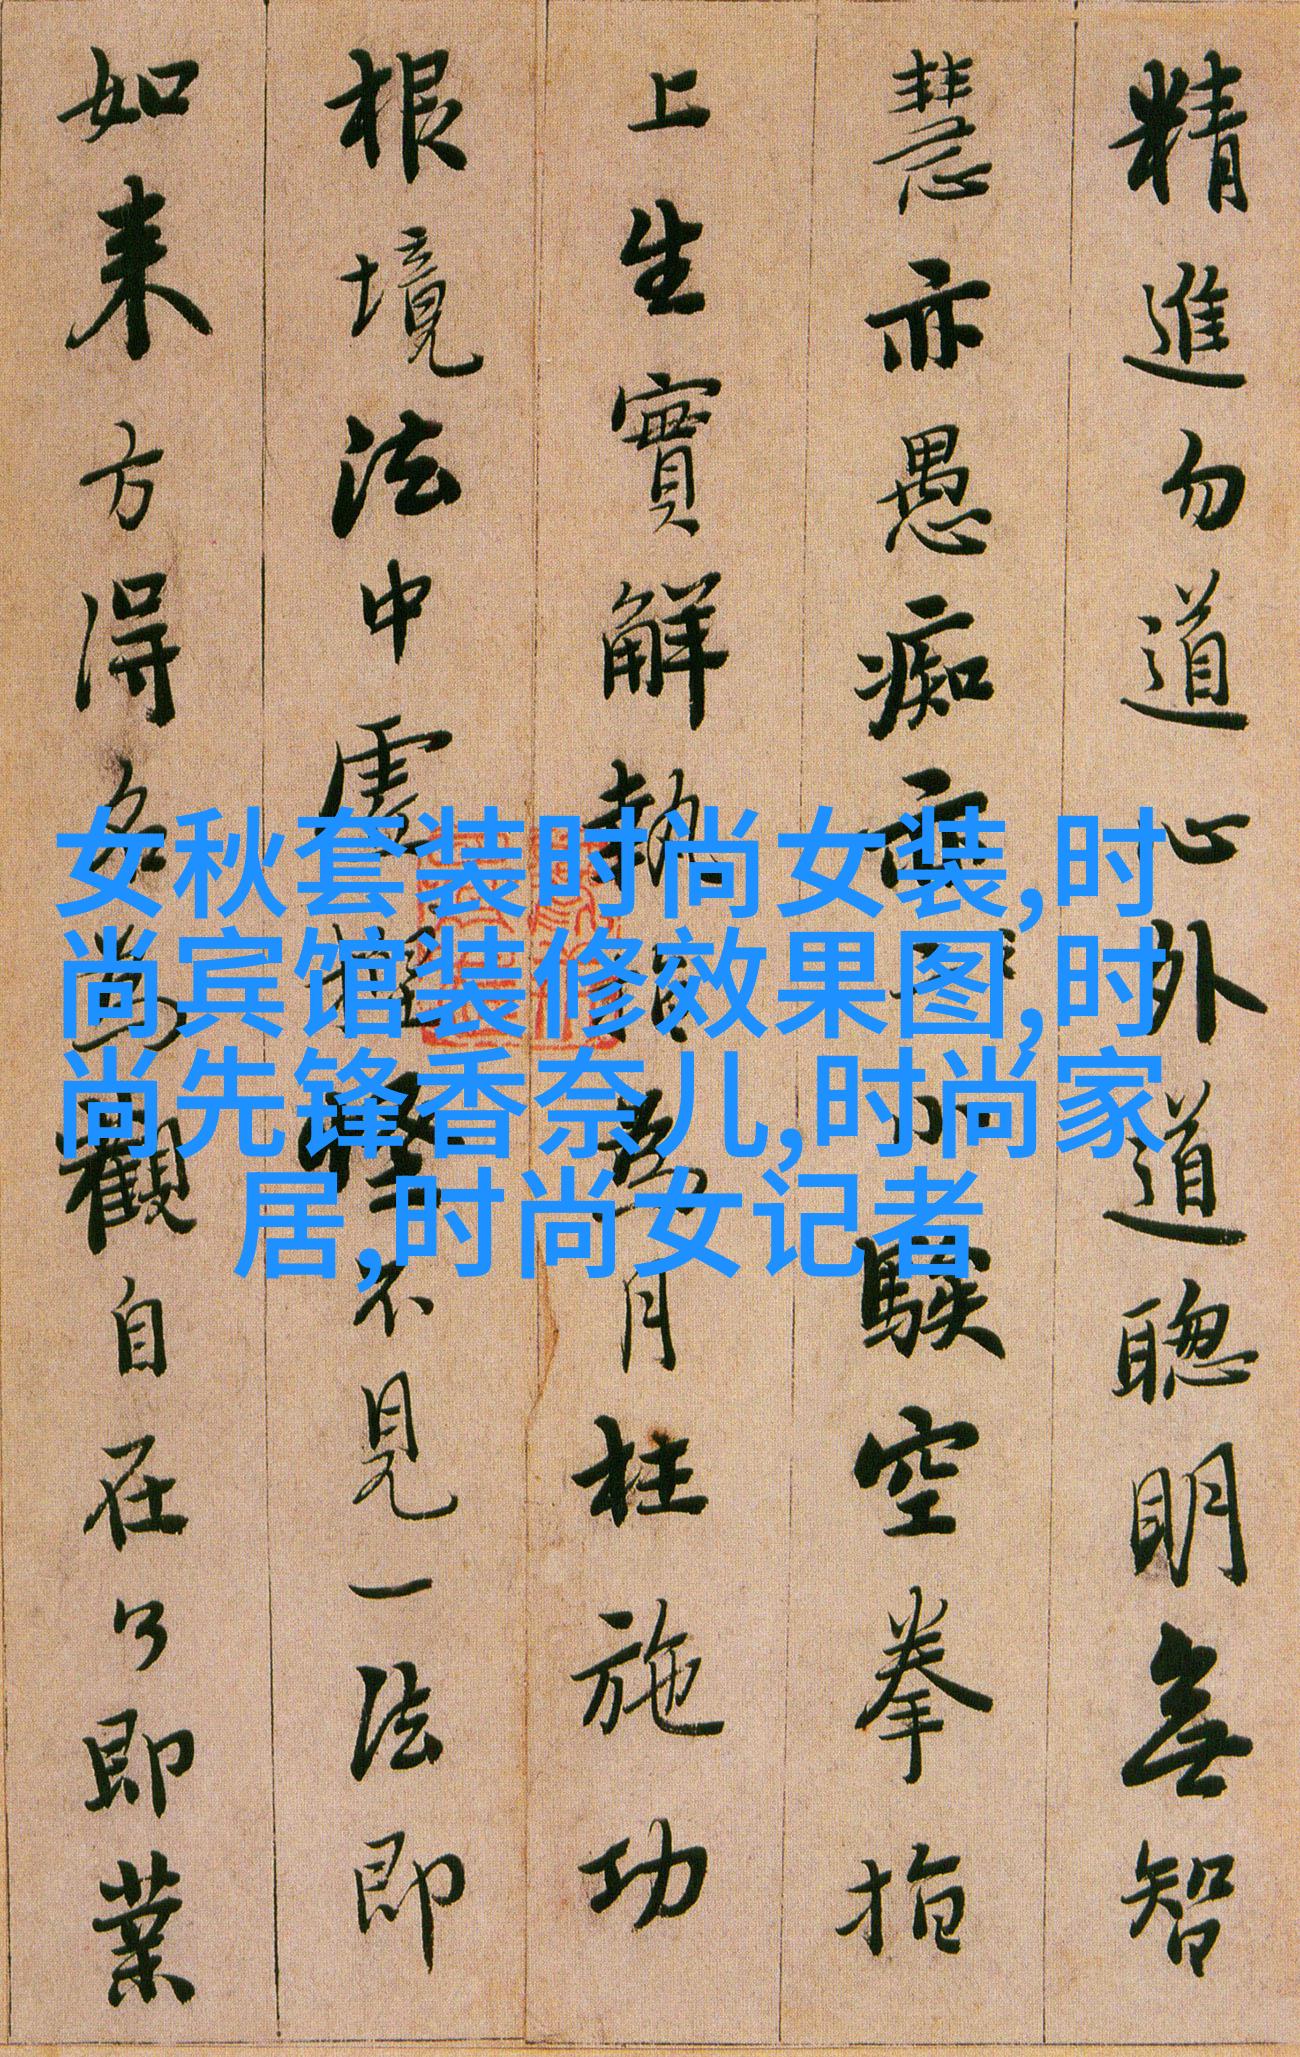 精進勿道心外道聰明無智
慧亦愚痴亦小騃空拳指
上生實解執指為月枉施功
根境法中虛捏怪不見一法即
如来方得名為觀自在了即業
女秋套装时尚女装,时
尚宾馆装修效果图,时
尚先锋香奈儿,时尚家
居,时尚女记者